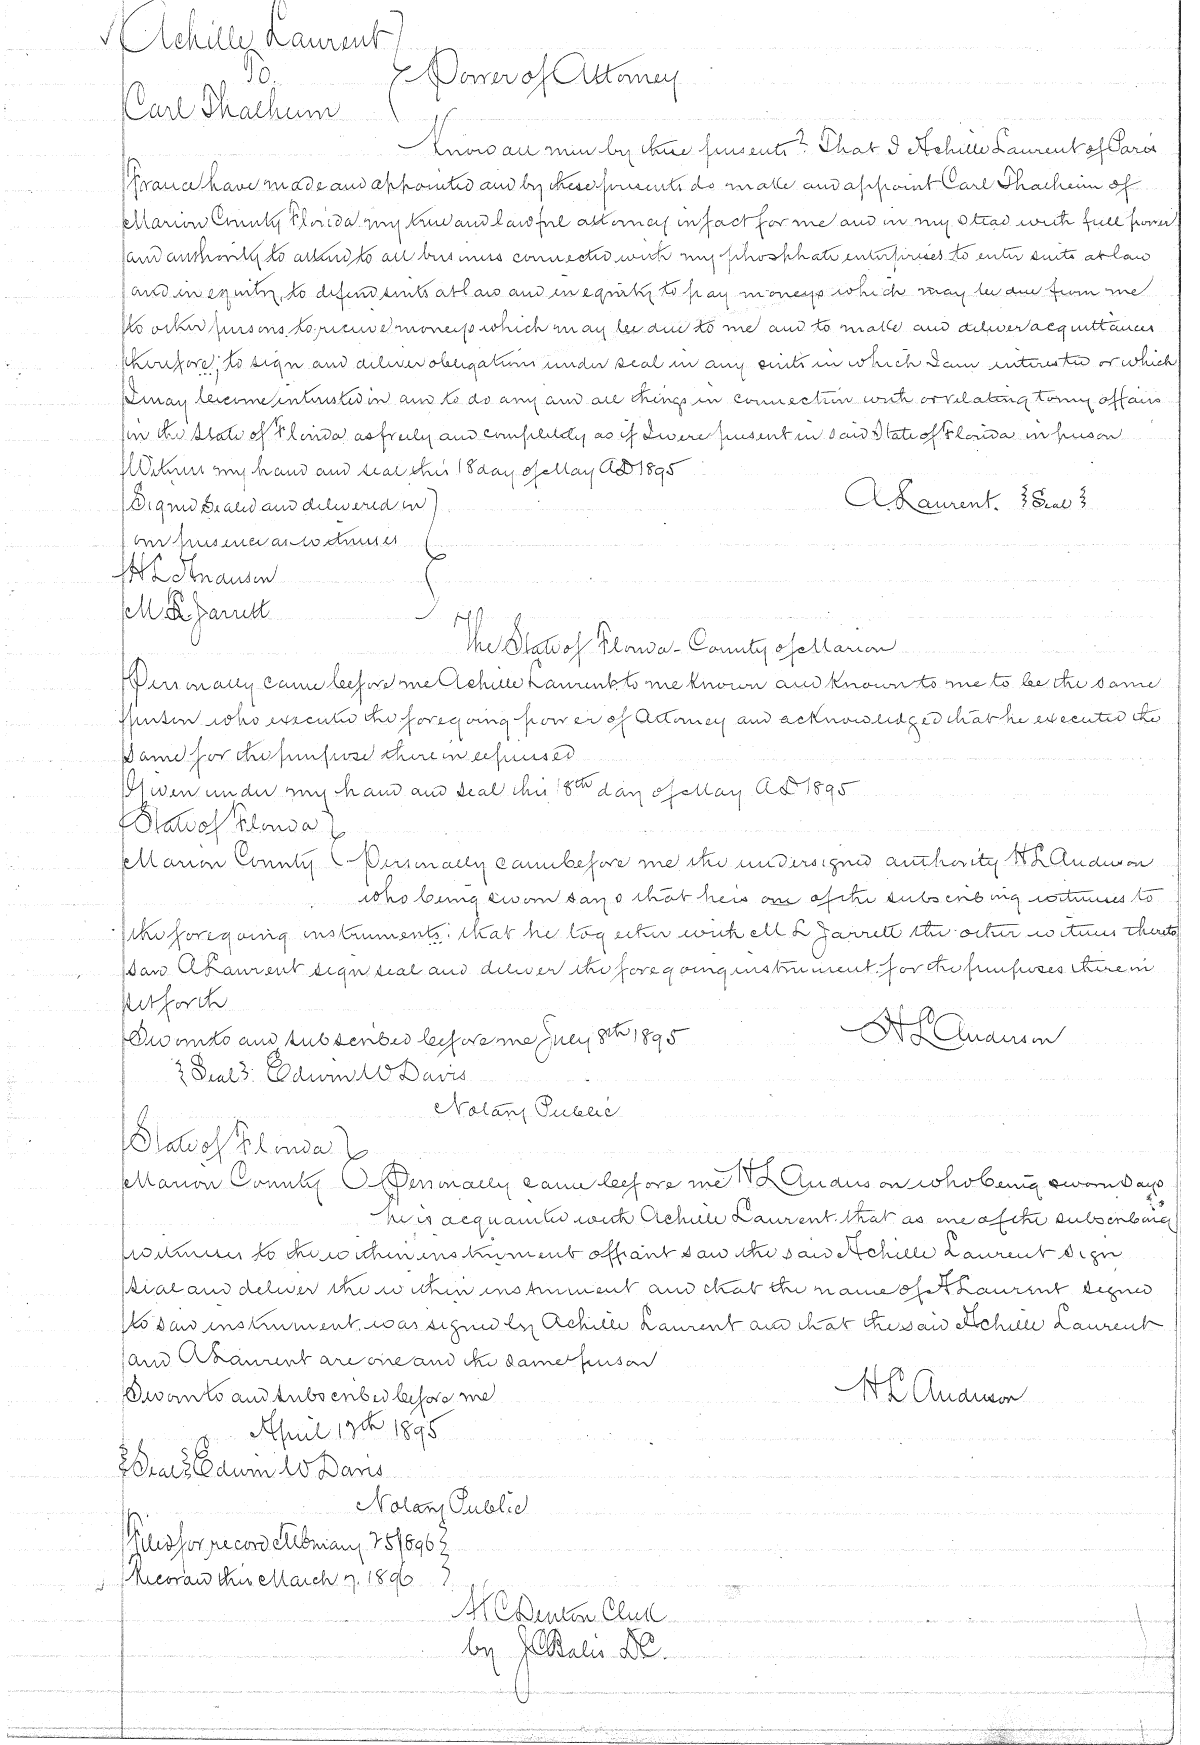 Achille Laurent
To
Power of Attorney
Carl Thalheim
Know all men by these presents: That I Achille Laurent of Paris
France have made and appointed and by these presents do make and appoint Carl Thalheim of
Marion County Florida my true and lawful attorney in fact for me and in my stead with full power
and authority to attend to all business connected with my phosphate enterprises to enter suits at law
and in equity, to defend suits at law and in equity to pay moneys which may be due from me
to other persons to receive moneys which may be due to me and to make and deliver acquittances
therefore; to sign and deliver obligations under seal in any suits in which I am interested or which
I may become interested in and to do any and all things in connection with or relating to my affairs
in the State of Florida as freely and completely as if I were present in said State of Florida in person
Witness my hand and seal this 18 day of May A D 1895
Signed Sealed and delivered in
A. Laurent. {Seal}
our presence as witnesses
H L Anderson
M L Jarrett
The State of Florida - County of Marion
Personally came before me Achille Laurent to me known and known to me to be the same
person who executed the foregoing power of Attorney and acknowledged that he executed the
same for the purpose therein expressed
Given under my hand and seal this 18th day of May A D 1895
State of Florida
Marion County Personally came before me the undersigned authority H L Anderson
who being sworn says that he is one of the subscribing witnesses to
the foregoing instruments: that he together with M L Jarrett the other witness thereto
saw A Laurent sign seal and deliver the foregoing instrument for the purposes therein
set forth
H L Anderson
Sworn to and subscribed before me July 8th 1895
{Seal} Edwin W Davis
Notary Public
State of Florida
Marion County Personally came before me H L Anderson who being sworn says
he is acquainted with Achille Laurent that as one of the subscribing
witnesses to the within instrument affiant saw the said Achille Laurent sign
seal and deliver the within instrument and that the name of A Laurent signed
to said instrument was signed by Achille Laurent and that the said Achille Laurent
and A Laurent are one and the same person
Sworn to and subscribed before me
H L Anderson
April 17th 1895
{Seal} Edwin W Davis
Notary Public
Filed for record February 25/1896
Recorded this March 7. 1896
H C Denton Clerk
by J C Balis D C.